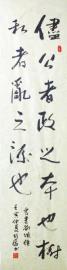 儘公者政之本也樹
私者亂之源也